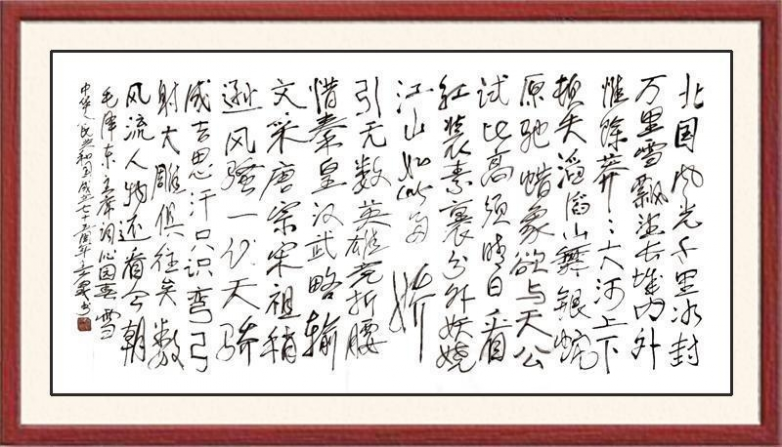 北国风光千里冰封
万里雪飘望长城内外
惟馀莽々大河上下
顿失滔滔山舞银蛇
原驰蜡象欲与天公
试比高须晴日看
红装素裹分外妖娆
江山如此多娇
引无数英雄竞折腰
惜秦皇汉武略输
文采唐宗宋祖稍
逊风骚一代天骄
成吉思汗只识弯弓
射大雕俱往矣数
风流人物还看今朝
毛泽东主席词沁园春雪
中华人民共和国成立七十五周年